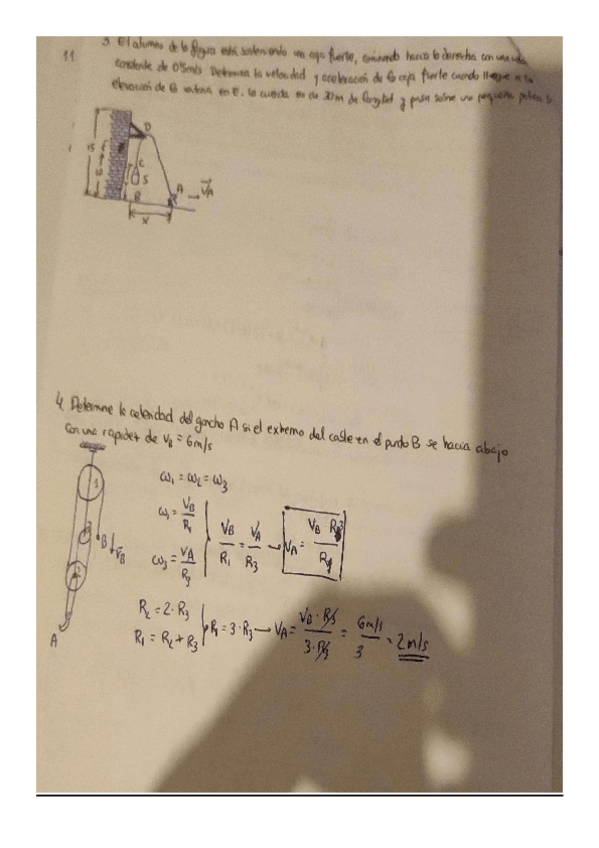 11
3. El alumno de la figura está sosteniendo una caja fuerte, caminando hacia la derecha con una
constante de 0'5m/s Determina la velocidad y aceleración de la caja fuerte cuando llegue a la
elevación de la ventana en E. la cuerda es de 30m de longitud y pasa sobre una pequeña polea
15
E
10
D
C
S
B
A
V_A
x
4, Determine la celeridad del gancho A si el extremo del cable en el punto B se hacia abajo
con una rapidez de V_B = 6m/s
1
3
B
V_B
2
A
ω₁ = ω₂ = ω₃
ω₁ = V_B / R₁
ω₃ = V_A / R₃
V_B / R₁ = V_A / R₃ → V_A = V_B R₃ / R₁
R₂ = 2·R₃
R₁ = R₂ + R₃
R₁ = 3·R₃ → V_A = V_B·R₃ / 3·R₃ = 6m/s / 3 = 2m/s